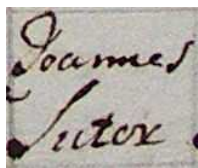 Joannes
Sutor